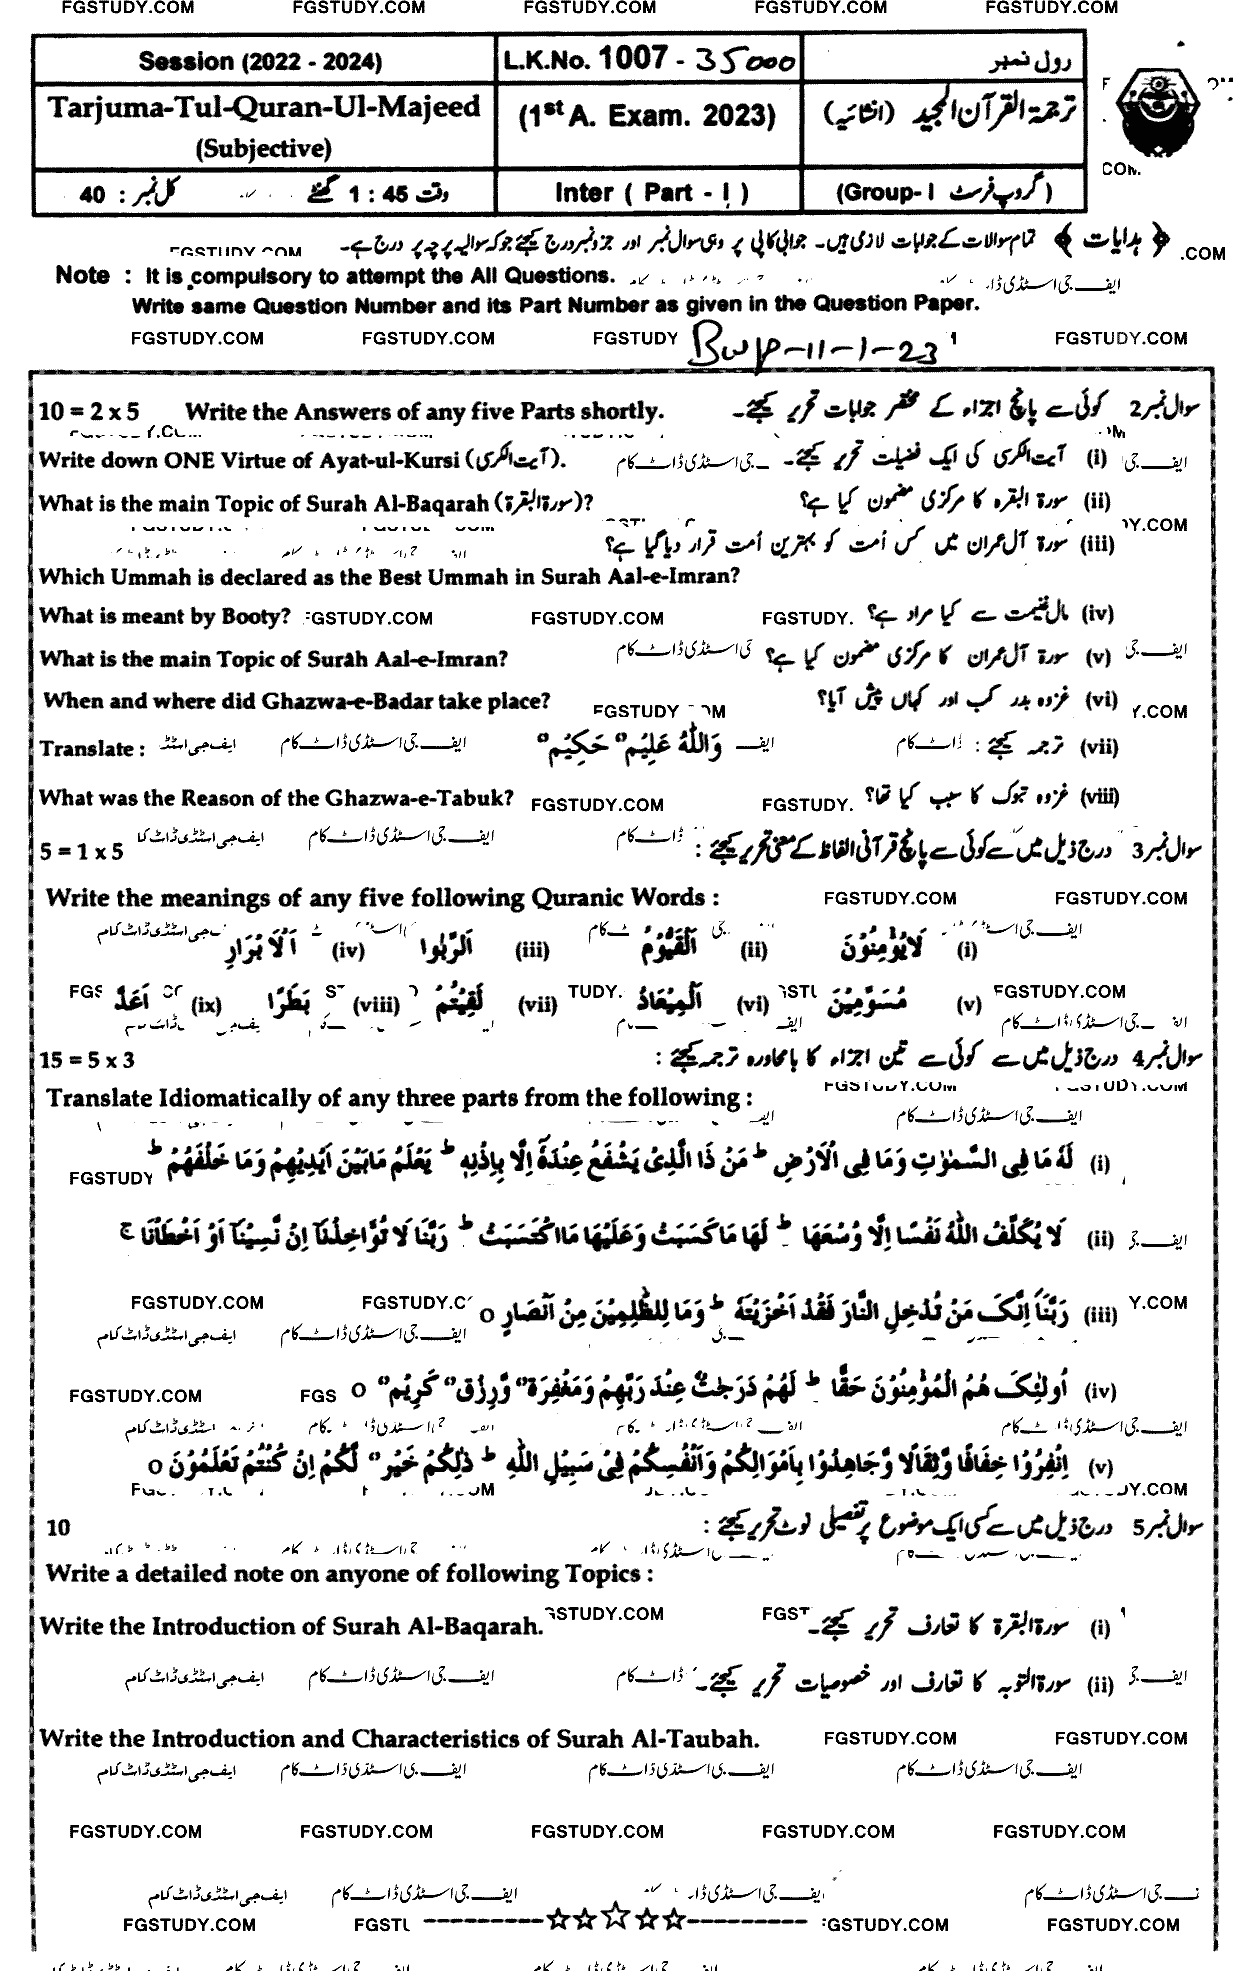 FGSTUDY.COM FGSTUDY.COM FGSTUDY.COM FGSTUDY.COM FGSTUDY.COM
Session (2022 - 2024) L.K.No. 1007 - 35000 رول نمبر
Tarjuma-Tul-Quran-Ul-Majeed (1st A. Exam. 2023) ترجمۃ القرآن المجید (انشائیہ)
(Subjective)
کل نمبر : 40 وقت 1 : 45 گھنٹے Inter ( Part - I ) (Group- I گروپ فرسٹ)
﴿ ہدایات ﴾ تمام سوالات کے جوابات لازمی ہیں۔ جوابی کاپی پر وہی سوال نمبر اور جزو نمبر درج کیجئے جو کہ سوالیہ پرچہ پر درج ہے۔
Note : It is compulsory to attempt the All Questions.
Write same Question Number and its Part Number as given in the Question Paper.
FGSTUDY.COM FGSTUDY.COM FGSTUDY FGSTUDY.COM
Bwp-11-1-23
10 = 2 x 5 Write the Answers of any five Parts shortly. سوال نمبر 2 کوئی سے پانچ اجزاء کے مختصر جوابات تحریر کیجئے۔
Write down ONE Virtue of Ayat-ul-Kursi (آیت الکرسی). (i) آیت الکرسی کی ایک فضیلت تحریر کیجئے۔
What is the main Topic of Surah Al-Baqarah (سورۃ البقرۃ)? (ii) سورۃ البقرہ کا مرکزی مضمون کیا ہے؟
(iii) سورۃ آل عمران میں کس اُمت کو بہترین اُمت قرار دیا گیا ہے؟
Which Ummah is declared as the Best Ummah in Surah Aal-e-Imran?
What is meant by Booty? FGSTUDY.COM FGSTUDY.COM FGSTUDY. (iv) مالِ غنیمت سے کیا مراد ہے؟
What is the main Topic of Surah Aal-e-Imran? (v) سورۃ آل عمران کا مرکزی مضمون کیا ہے؟
When and where did Ghazwa-e-Badar take place? (vi) غزوہ بدر کب اور کہاں پیش آیا؟
Translate : وَاللّٰهُ عَلِيْمٌ حَكِيْمٌ (vii) ترجمہ کیجئے :
What was the Reason of the Ghazwa-e-Tabuk? FGSTUDY.COM FGSTUDY. (viii) غزوہ تبوک کا سبب کیا تھا؟
5 = 1 x 5 سوال نمبر 3 درج ذیل میں سے کوئی سے پانچ قرآنی الفاظ کے معنی تحریر کیجئے :
Write the meanings of any five following Quranic Words : FGSTUDY.COM FGSTUDY.COM
(i) لَايُؤْمِنُوْنَ (ii) اَلْقَيُّوْمُ (iii) اَلرِّبٰوا (iv) اَلْاَبْرَارِ
(v) مُسَوِّمِيْنَ (vi) اَلْمِيْعَادَ (vii) لَقِيْتُمْ (viii) بَطَرًا (ix) اَعَدَّ
15 = 5 x 3 سوال نمبر 4 درج ذیل میں سے کوئی سے تین اجزاء کا بامحاورہ ترجمہ کیجئے :
Translate Idiomatically of any three parts from the following :
(i) لَهٗ مَا فِى السَّمٰوٰتِ وَمَا فِى الْاَرْضِ ؕ مَنْ ذَا الَّذِىْ يَشْفَعُ عِنْدَهٗ اِلَّا بِاِذْنِهٖ ؕ يَعْلَمُ مَابَيْنَ اَيْدِيْهِمْ وَمَا خَلْفَهُمْ ؕ
(ii) لَا يُكَلِّفُ اللّٰهُ نَفْسًا اِلَّا وُسْعَهَا ؕ لَهَا مَاكَسَبَتْ وَعَلَيْهَا مَااكْتَسَبَتْ ؕ رَبَّنَا لَا تُؤَاخِذْنَا اِنْ نَّسِيْنَا اَوْ اَخْطَاْنَا ۚ
(iii) رَبَّنَا اِنَّكَ مَنْ تُدْخِلِ النَّارَ فَقَدْ اَخْزَيْتَهٗ ؕ وَمَا لِلظّٰلِمِيْنَ مِنْ اَنْصَارٍ o
(iv) اُولٰئِكَ هُمُ الْمُؤْمِنُوْنَ حَقًّا ؕ لَهُمْ دَرَجٰتٌ عِنْدَ رَبِّهِمْ وَمَغْفِرَةٌ وَّرِزْقٌ كَرِيْمٌ o
(v) اِنْفِرُوْا خِفَافًا وَّثِقَالًا وَّجَاهِدُوْا بِاَمْوَالِكُمْ وَاَنْفُسِكُمْ فِىْ سَبِيْلِ اللّٰهِ ؕ ذٰلِكُمْ خَيْرٌ لَّكُمْ اِنْ كُنْتُمْ تَعْلَمُوْنَ o
10 سوال نمبر 5 درج ذیل میں سے کسی ایک موضوع پر تفصیلی نوٹ تحریر کیجئے :
Write a detailed note on anyone of following Topics :
Write the Introduction of Surah Al-Baqarah. (i) سورۃ البقرۃ کا تعارف تحریر کیجئے۔
(ii) سورۃ التوبہ کا تعارف اور خصوصیات تحریر کیجئے۔
Write the Introduction and Characteristics of Surah Al-Taubah. FGSTUDY.COM FGSTUDY.COM
ایف جی اسٹڈی ڈاٹ کام ایف جی اسٹڈی ڈاٹ کام ایف جی اسٹڈی ڈاٹ کام ایف جی اسٹڈی ڈاٹ کام
FGSTUDY.COM FGSTUDY.COM FGSTUDY.COM FGSTUDY.COM FGSTUDY.COM
FGSTUDY.COM ----------☆☆☆☆☆---------- GSTUDY.COM FGSTUDY.COM